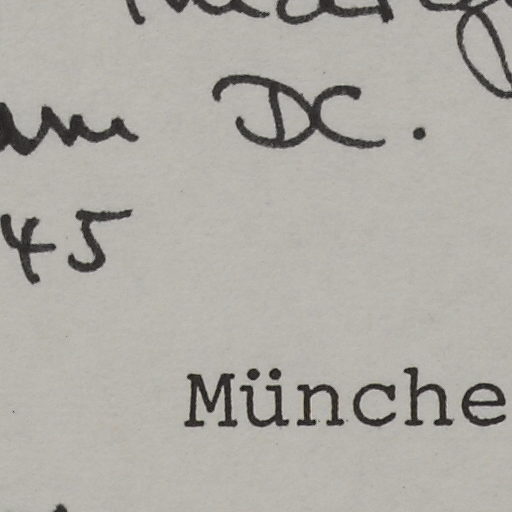 am DC.
45
Münche